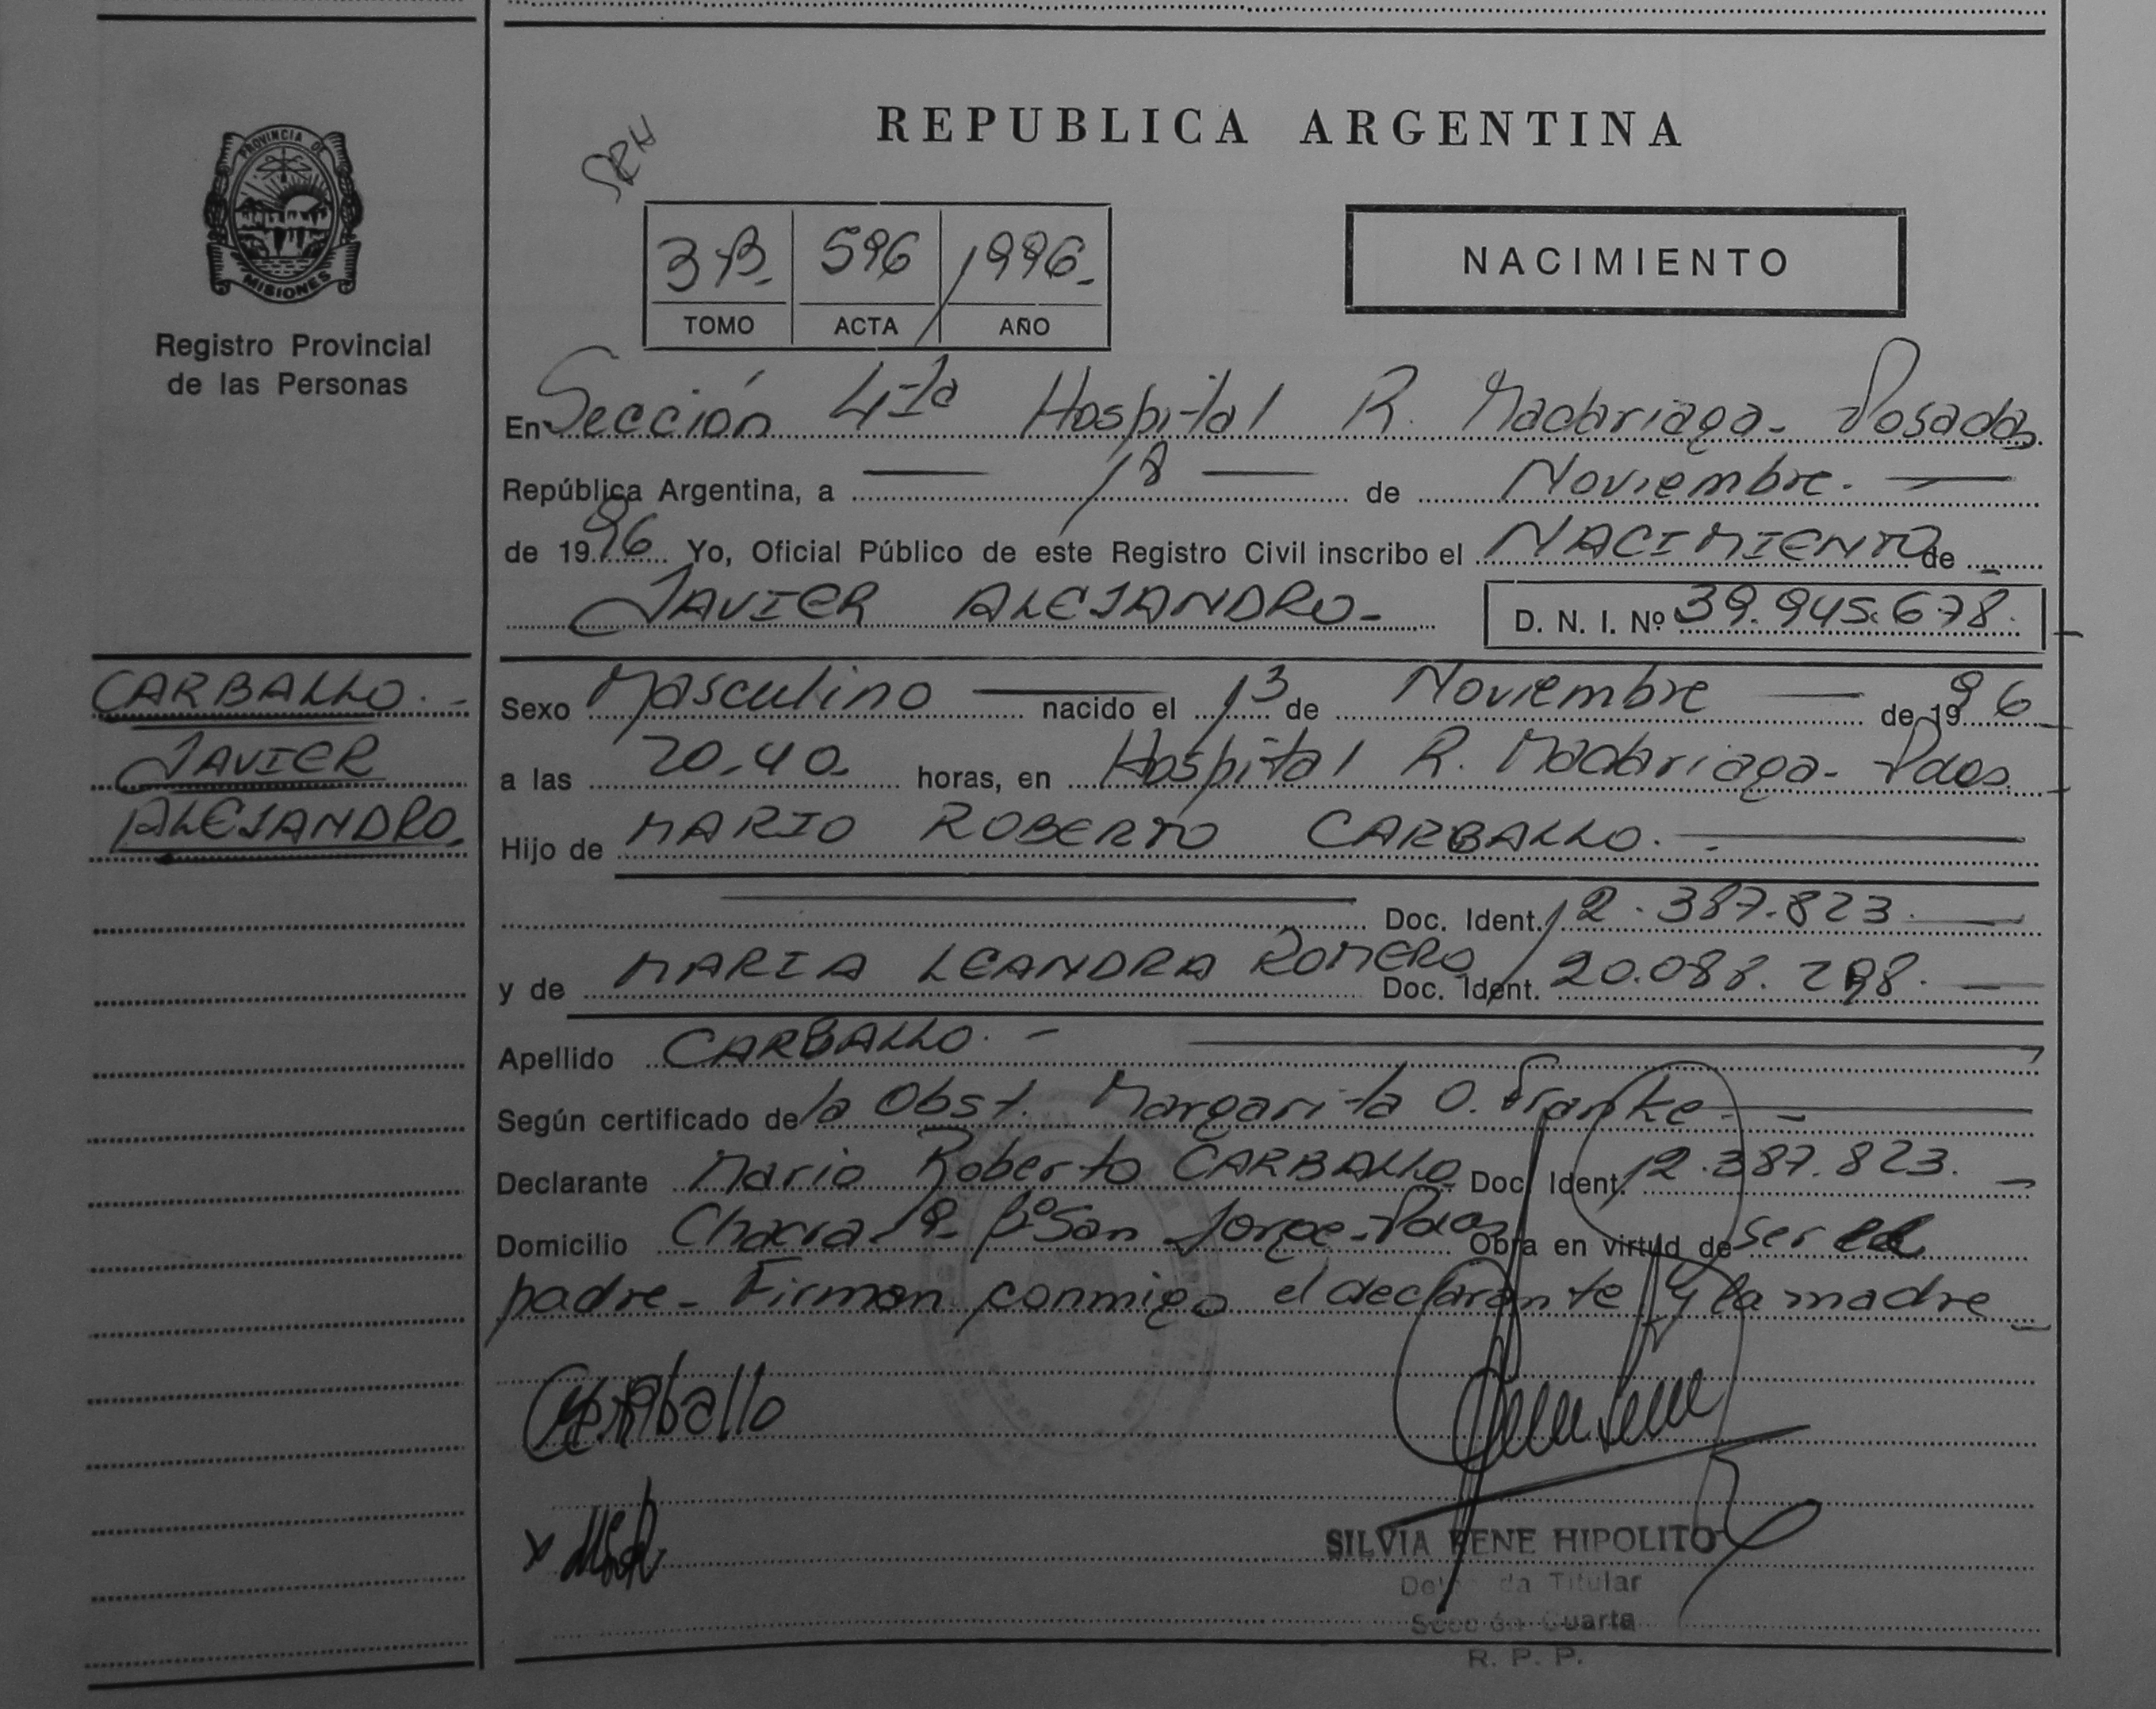 REPUBLICA ARGENTINA
PROVINCIA DE
MISIONES
Registro Provincial
de las Personas
SRH
3 B. 596 1996.
TOMO ACTA AÑO
NACIMIENTO
En Sección 4ta Hospital R. Madariaga - Posadas
República Argentina, a 18 de Noviembre.
de 1996 Yo, Oficial Público de este Registro Civil inscribo el NACIMIENTO de
JAVIER ALEJANDRO - D. N. I. Nº 39.945.678.
CARBALLO. -
JAVIER
ALEJANDRO.
Sexo Masculino nacido el 13 de Noviembre de 1996
a las 20.40. horas, en Hospital R. Madariaga - Pdas.
Hijo de MARIO ROBERTO CARBALLO. -
Doc. Ident. 12.387.823.
y de MARIA LEANDRA ROMERO Doc. Ident. 20.088.298.
Apellido CARBALLO. -
Según certificado de la Obst. Margarita O. Franke -
Declarante Mario Roberto CARBALLO Doc. Ident. 12.387.823.
Domicilio Chacra Bº San Jorge - Pdas Obra en virtud de ser el
padre - Firman conmigo el declarante y la madre
Carballo
SILVIA RENE HIPOLITO
Titular
Cuarta
R. P. P.